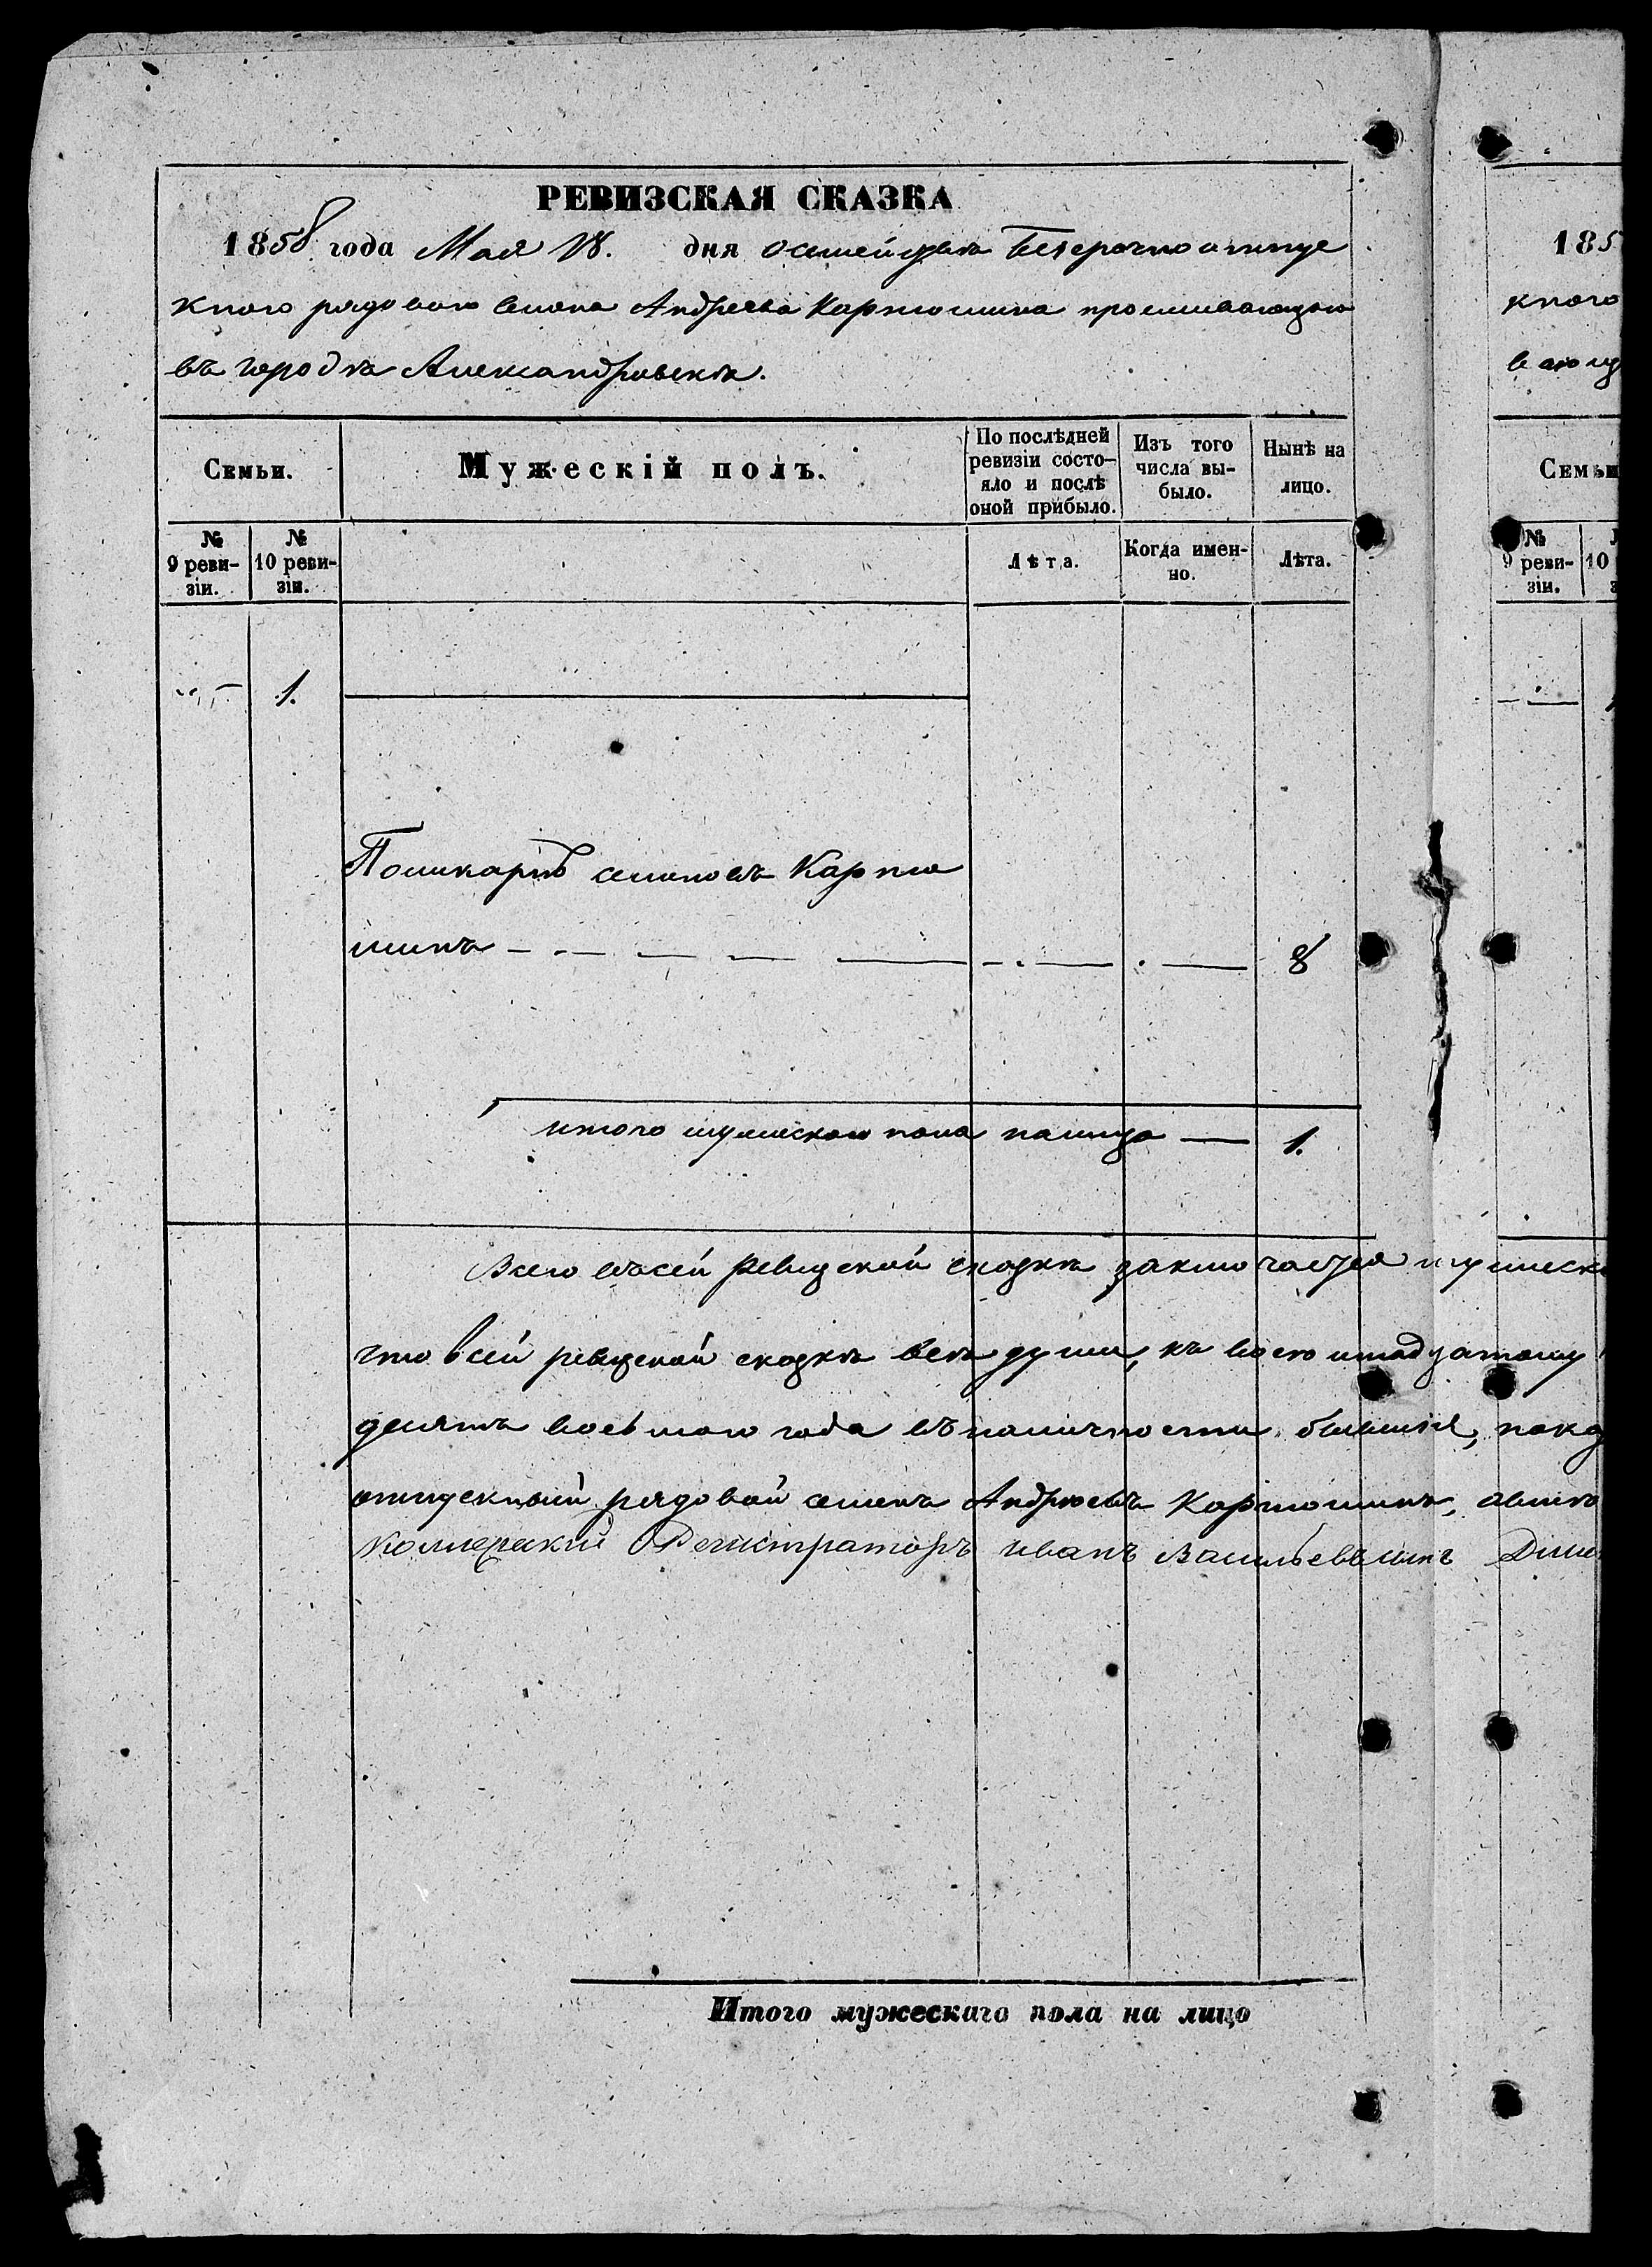 РЕВИЗСКАЯ СКАЗКА
1858 года Мая 18. дня о семействѣ Безсрочно отпуск
кного рядоваго Семена Андреева Картюшина проживающаго
въ городѣ Александровскѣ.
Семьи.
Мужескій полъ.
По послѣдней ревизіи состо-
яло и послѣ оной прибыло.
Изъ того числа вы-
было.
Нынѣ на лицо.
№ 9 реви-
зіи.
№ 10 реви-
зіи.
Лѣта.
Когда имен-
но.
Лѣта.
1.
Поликарпъ семеновъ Картю
шинъ 8
итого мужескаго пола налицо — 1.
Всего въ сей ревизской сказкѣ заключается мужеска
что в сей ревизской сказкѣ всѣ души, къ
десять восьмого года въ наличности бывшія, пока
отпускный рядовой семенъ Андреевъ Картюшинъ, а вмѣсто
Коллежскій Регистраторъ иванъ Васильевъ сынъ
Итого мужескаго пола на лицо
185
кного
вающ
Семьи
№ 9 реви-
зіи.
10